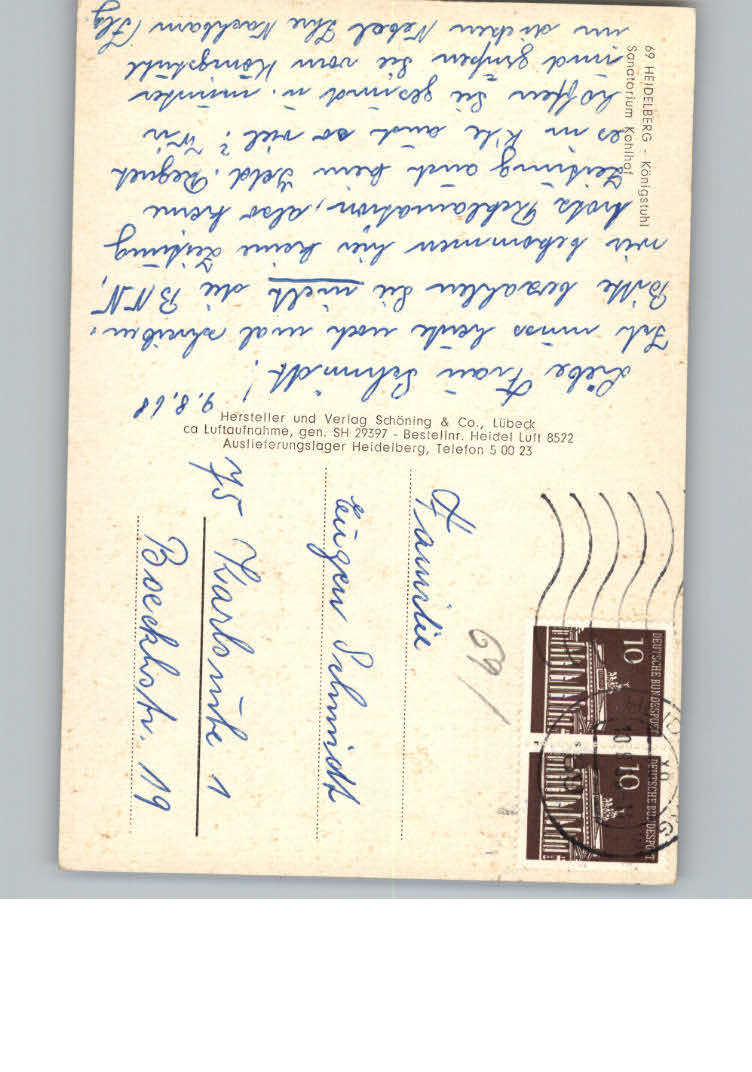 69 HEIDELBERG - Königstuhl
Sanatorium Kohlhof
9.8.68
Liebe Frau Schmidt!
Ich muss heute noch mal schreiben.
Bitte bezahlen Sie nicht die BNN,
wir bekommen hier keine Zeitung
trotz Reklamation, also keine
Zeitung auch kein Geld. Regnet
es in Khe auch so viel? Wir
hoffen Sie gesund u. munter
und grüßen Sie vom Königstuhl
im dicken Nebel Ihre Nachbarn
Hersteller und Verlag Schöning & Co., Lübeck
ca Luftaufnahme, gen. SH 29397 - Bestellnr. Heidel Luft 8522
Auslieferungslager Heidelberg, Telefon 5 00 23
DEUTSCHE BUNDESPOST
10
DEUTSCHE BUNDESPOST
10
69/
Familie
Eugen Schmidt
75 Karlsruhe 1
Boeckhstr. 19